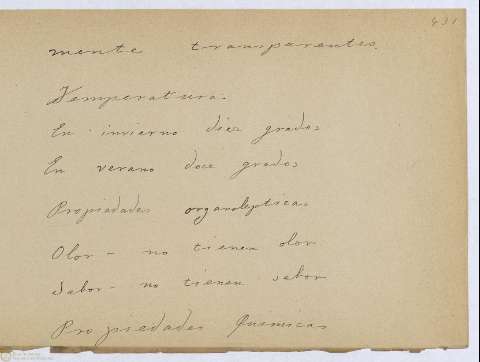 431
mente transparentes.
Temperatura.
En invierno diez grados
En verano doce grados
Propiedades organolepticas
Olor - no tienen olor
Sabor - no tienen sabor
Propiedades Quimicas